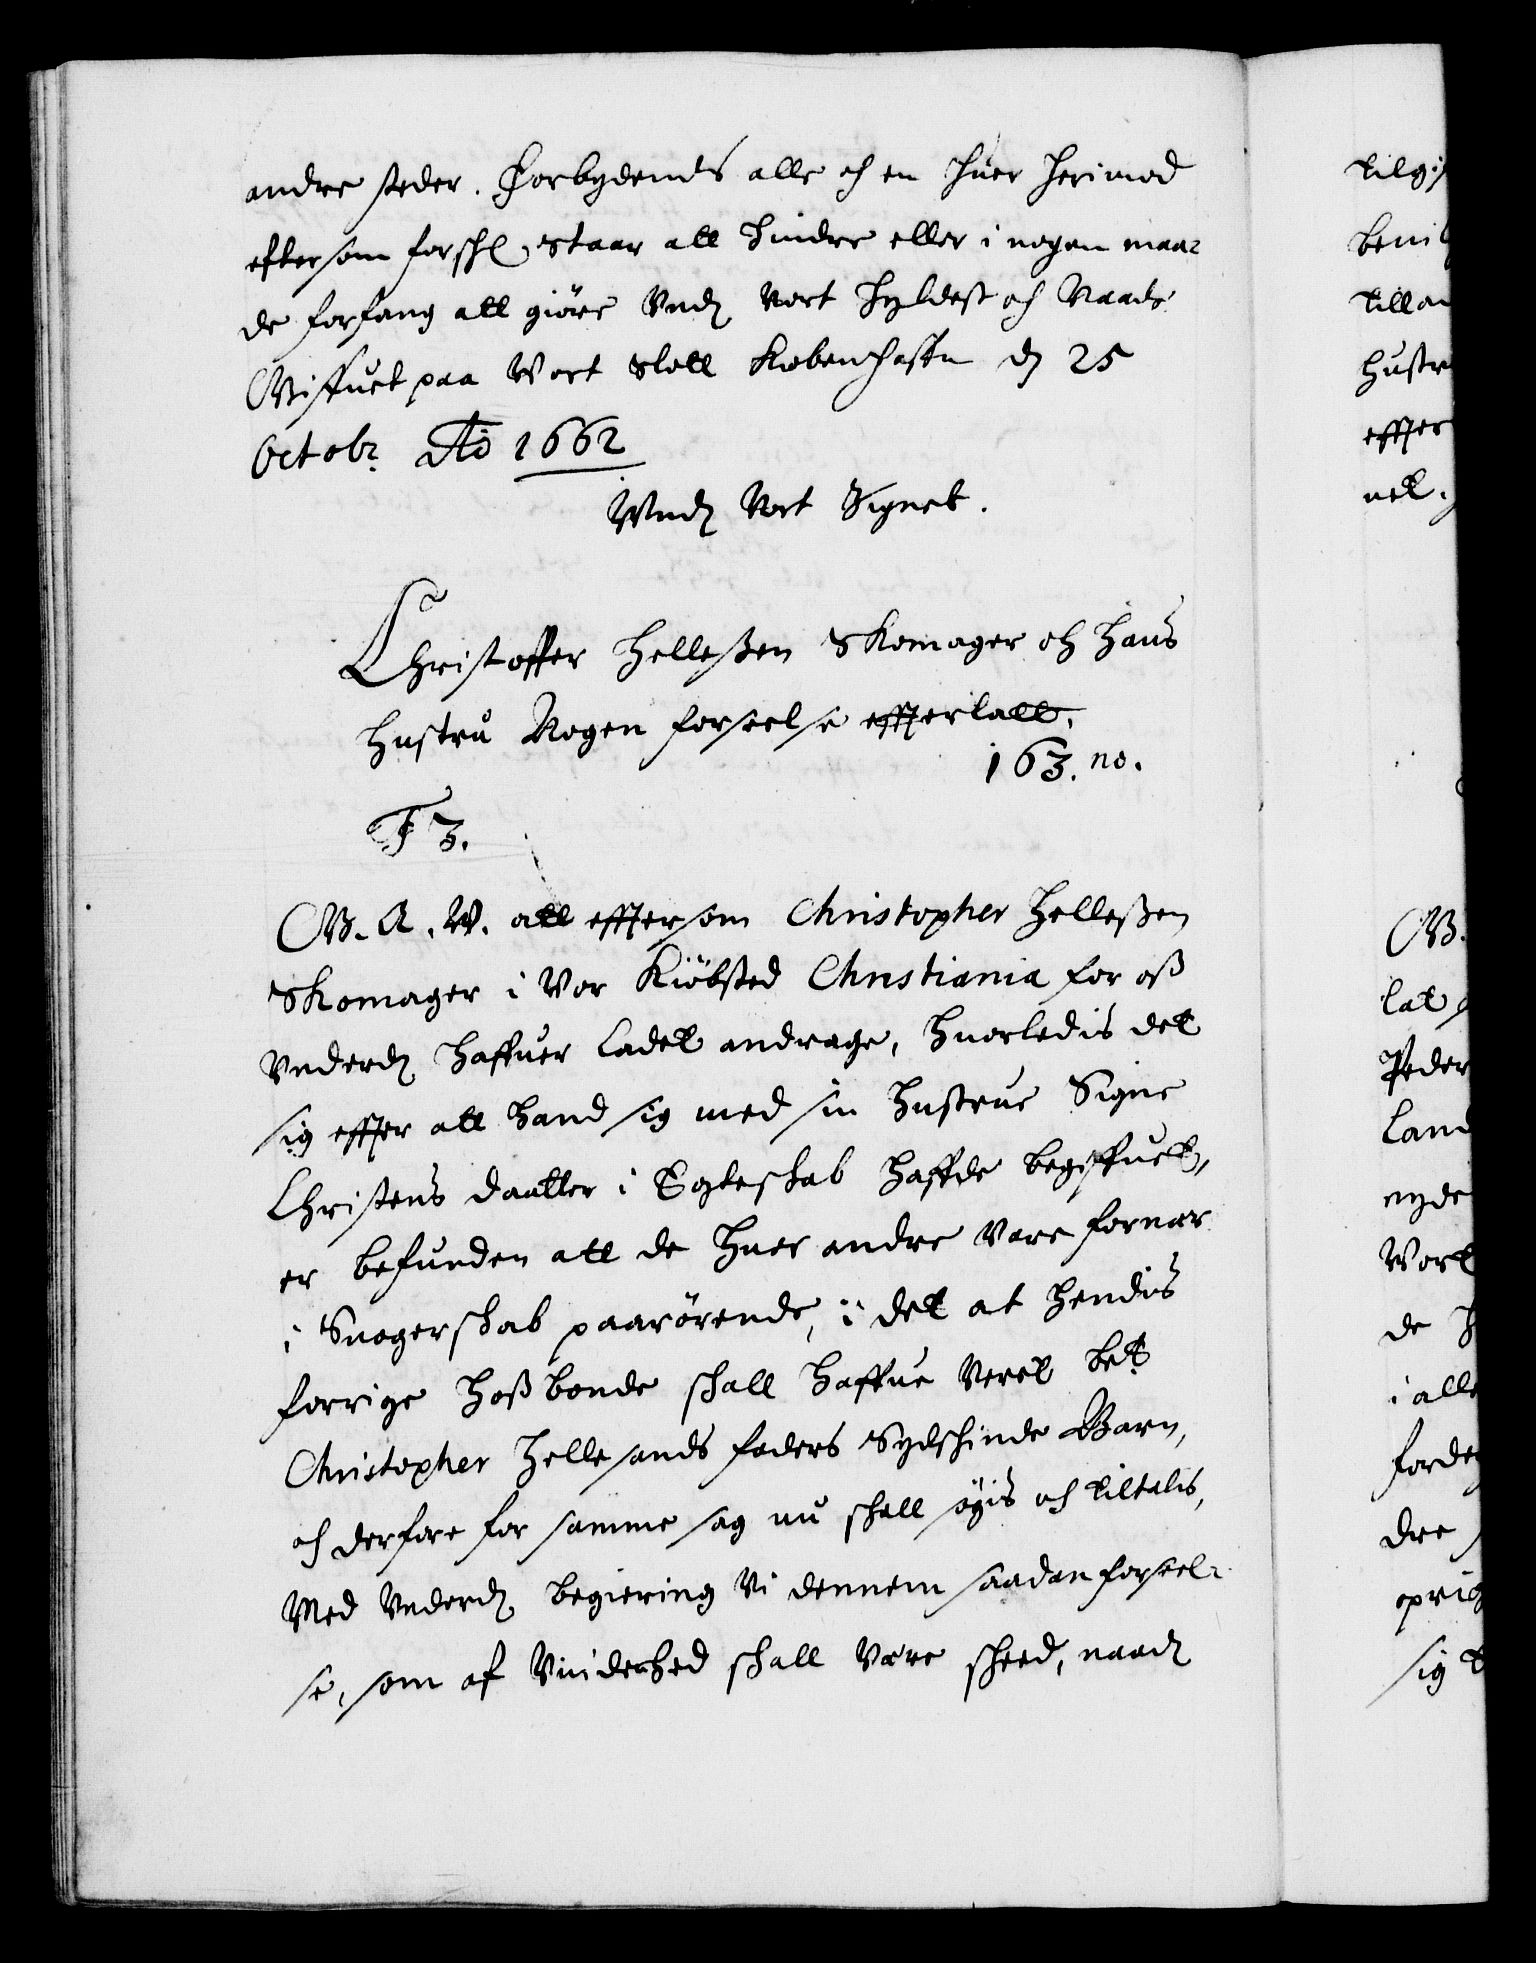 andre steder. Forbydendis alle och en huer herimod
eftersom forschr staar att hindre eller i nogen maa-
de forfang att giöre Vndr Vort hyldest och Naade
Giffuet paa Wort Slott Kiøbenhaffn dr 25
Octobr. Ao 1662
Wndr Vort Signet.
Christoffer Helleßen Skomager och hans
hustru Nogen forseelse efferlatt.
163. no.
F 3.
G. A. W. att effersom Christopher Helleßen
Skomager i Vor Kiöbsted Christiania for oß
Vnderdr haffuer ladet andrage, huorledis det
sig effer att hand sig med sin hustrue Signe
Christens daatter i Egteskab haffde begiffuet,
er befunden att de huer andre Vare fornær
i Suogerskab paarörende, i det at hendis
forrige hoßbonde schall haffue Veret bet
Christopher Hellesøns faders Sydschinde Barn,
och derfore for samme sag nu schall søgis och tiltalis,
Med Vnderdr begiering Vi dennem saadan forseel-
se, som af Vuidenhed schall Være scheed, naadr
tilgi
hustr
effter
G.
Peder
nyde
Wort
de
i alle
forde
dre
sig